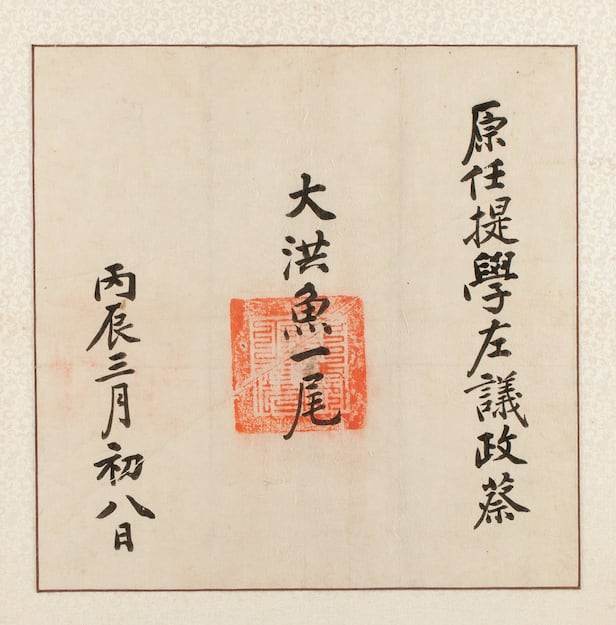 原任提學左議政蔡
大洪魚一尾
丙辰三月初八日